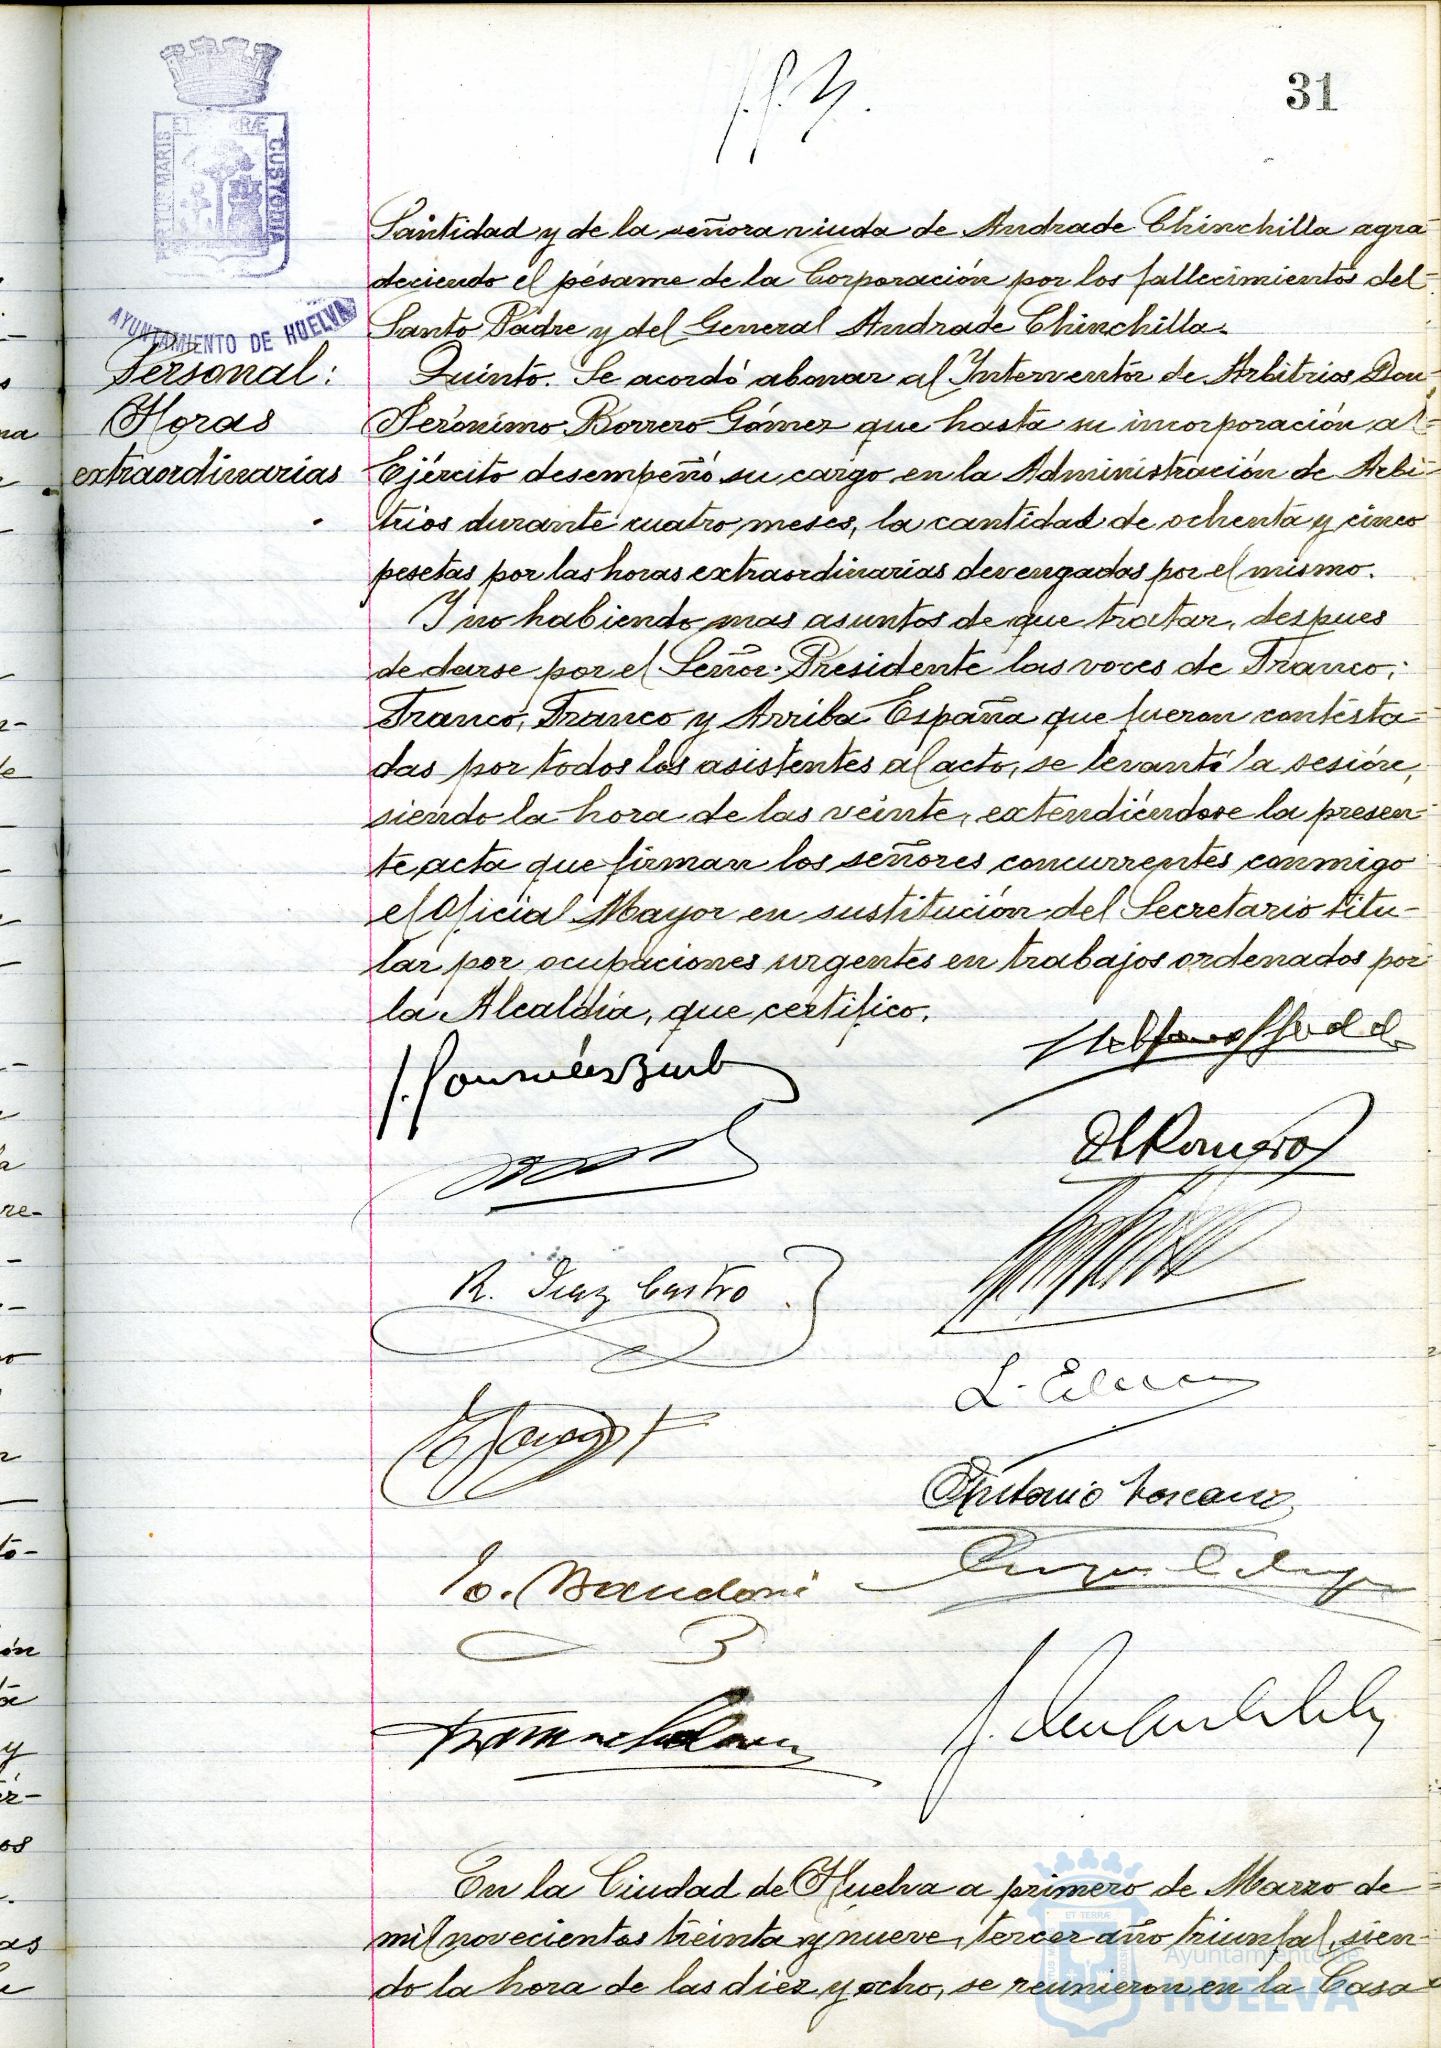 31
PORTUS MARIS ET TERRÆ CUSTODIA
AYUNTAMIENTO DE HUELVA
Santidad y de la señora viuda de Andrade Chinchilla agra-
deciendo el pésame de la Corporación por los fallecimientos del
Santo Padre y del General Andrade Chinchilla.
Personal:
Horas
extraordinarias
Quinto. Se acordó abonar al Interventor de Arbitrios Don
Jerónimo Borrero Gómez que hasta su incorporación al
Ejército desempeñó su cargo en la Administración de Arbi-
trios durante cuatro meses, la cantidad de ochenta y cinco
pesetas por las horas extraordinarias devengadas por el mismo.
Y no habiendo mas asuntos de que tratar, despues
de darse por el Señor Presidente las voces de Franco,
Franco, Franco y Arriba España que fueron contesta-
das por todos los asistentes al acto, se levantó la sesión,
siendo la hora de las veinte, extendiéndose la presen-
te acta que firman los señores concurrentes conmigo
el Oficial Mayor en sustitución del Secretario titu-
lar por ocupaciones urgentes en trabajos ordenados por
la Alcaldía, que certifico.
R. Diaz Castro
Antonio Toscano
En la Ciudad de Huelva a primero de Marzo de
mil novecientos treinta y nueve, tercer año triunfal, sien-
do la hora de las diez y ocho, se reunieron en la Casa
Ayuntamiento de
HUELVA